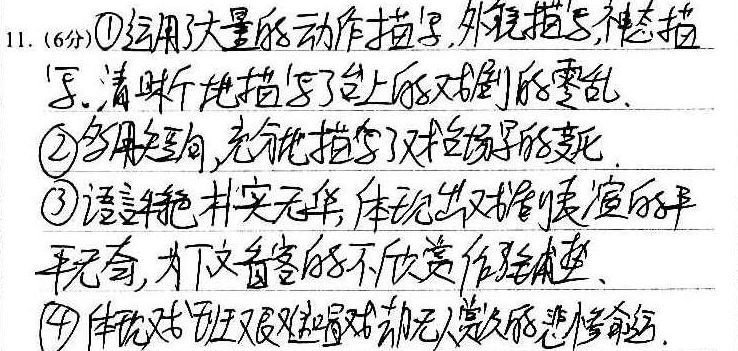 11. (6分)①运用了大量的动作描写,外貌描写,神态描
写.清晰地描写了台上的戏剧的零乱.
②多用短句,充分地描写了戏台场景的变化.
③语言特色朴实无华,体现出戏剧表演的平
平无奇,为下文看客的不欣赏作铺垫.
④体现戏班艰难唱戏却无人赏的悲惨命运.